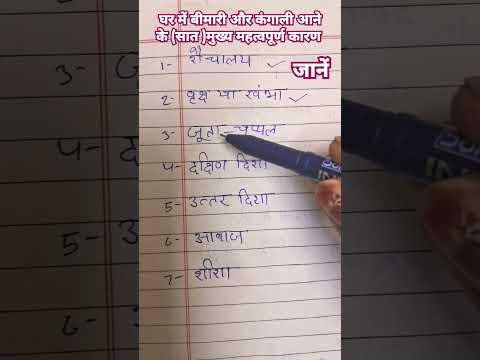 घर में बीमारी और कंगाली आने
के (सात )मुख्य महत्वपूर्ण कारण
जानें
1- शौचालय ✓
2- वृक्ष या खंभा ✓
3- जूता-चप्पल
4- दक्षिण दिशा
5- उत्तर दिशा
6- आवाज
7- शीशा